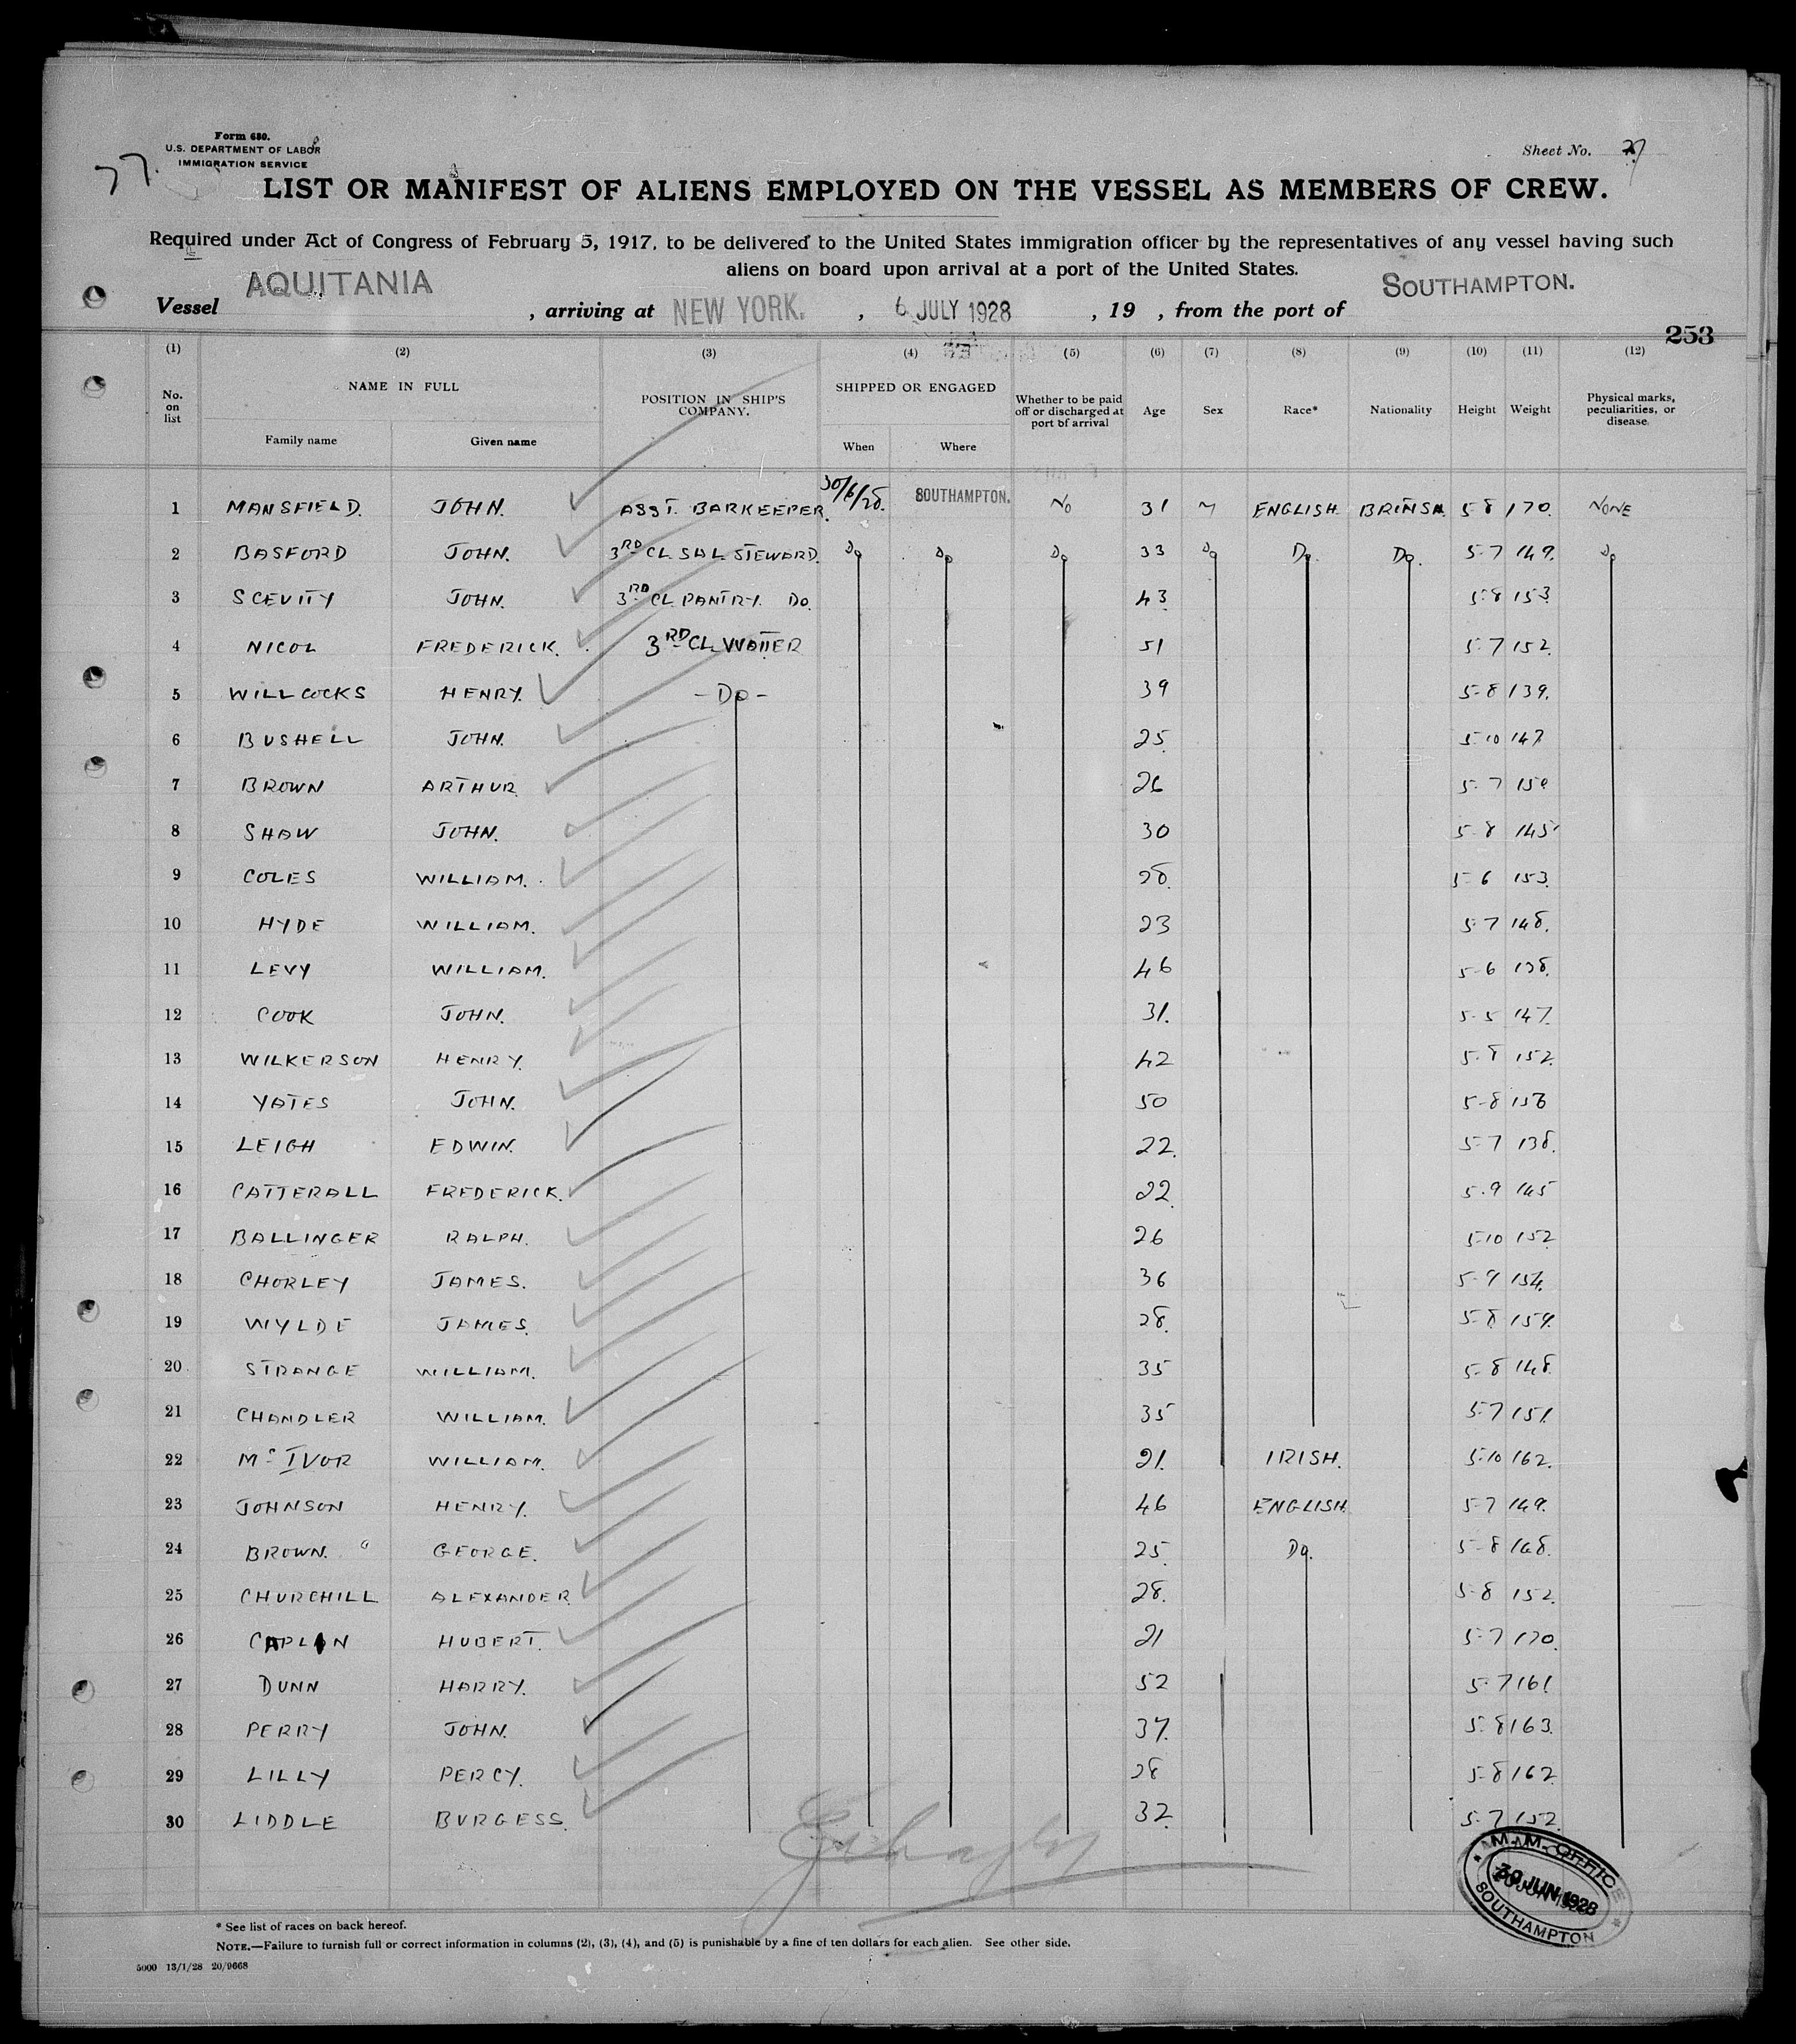 Form 680.
U.S. DEPARTMENT OF LABOR
IMMIGRATION SERVICE
77.
Sheet No. 27
LIST OR MANIFEST OF ALIENS EMPLOYED ON THE VESSEL AS MEMBERS OF CREW.
Required under Act of Congress of February 5, 1917, to be delivered to the United States immigration officer by the representatives of any vessel having such
aliens on board upon arrival at a port of the United States.
Vessel AQUITANIA , arriving at NEW YORK. , 6 JULY 1928 , 19 , from the port of SOUTHAMPTON.
253
(1) (2) (3) (4) (5) (6) (7) (8) (9) (10) (11) (12)
No. on list NAME IN FULL POSITION IN SHIP'S COMPANY. SHIPPED OR ENGAGED Whether to be paid off or discharged at port of arrival Age Sex Race* Nationality Height Weight Physical marks, peculiarities, or disease.
Family name Given name When Where
1 MANSFIELD. JOHN. ASST. BARKEEPER. 30/6/28. SOUTHAMPTON. NO 31 M ENGLISH. BRITISH. 5 8 170. NONE
2 BASFORD JOHN. 3RD CL SAL STEWARD. Do Do Do 33 Do Do. Do. 5-7 149. Do
3 SCEVITY JOHN. 3RD CL PANTRY. Do. 43 5-8 153.
4 NICOL FREDERICK. 3RD CL WAITER 51 5-7 152.
5 WILLCOCKS HENRY. -Do- 39 5-8 139.
6 BUSHELL JOHN. 25. 5-10 147.
7 BROWN ARTHUR. 26 5-7
8 SHAW JOHN. 30 5-8 145
9 COLES WILLIAM. 28. 5-6 153.
10 HYDE WILLIAM. 23 5-7 148.
11 LEVY WILLIAM. 46 5-6 138.
12 COOK JOHN. 31. 5-5 147.
13 WILKERSON HENRY. 42 5-8 152.
14 YATES JOHN. 50 5-8
15 LEIGH EDWIN. 22. 5-7 138.
16 CATTERALL FREDERICK. 22. 5-9 145
17 BALLINGER RALPH. 26 5-10 152
18 CHORLEY JAMES. 36 5-9 154.
19 WYLDE JAMES. 28. 5-8 159.
20 STRANGE WILLIAM. 35 5-8 148.
21 CHANDLER WILLIAM. 35 5-7 151.
22 Mc IVOR WILLIAM. 21. IRISH. 5-10 162.
23 JOHNSON HENRY. 46 ENGLISH. 5-7 149.
24 BROWN. GEORGE. 25. Do. 5-8 168.
25 CHURCHILL ALEXANDER. 28. 5-8 152.
26 CAPLAN HUBERT. 21 5-7 170.
27 DUNN HARRY. 52 5-7 161.
28 PERRY JOHN. 37. 5-8 163.
29 LILLY PERCY. 28 5-8 162.
30 LIDDLE BURGESS. 32. 5-7 152.
M.M. OFFICE
30 JUN 1928
SOUTHAMPTON
* See list of races on back hereof.
NOTE.—Failure to furnish full or correct information in columns (2), (3), (4), and (5) is punishable by a fine of ten dollars for each alien. See other side.
5000 13/1/28 20/9668